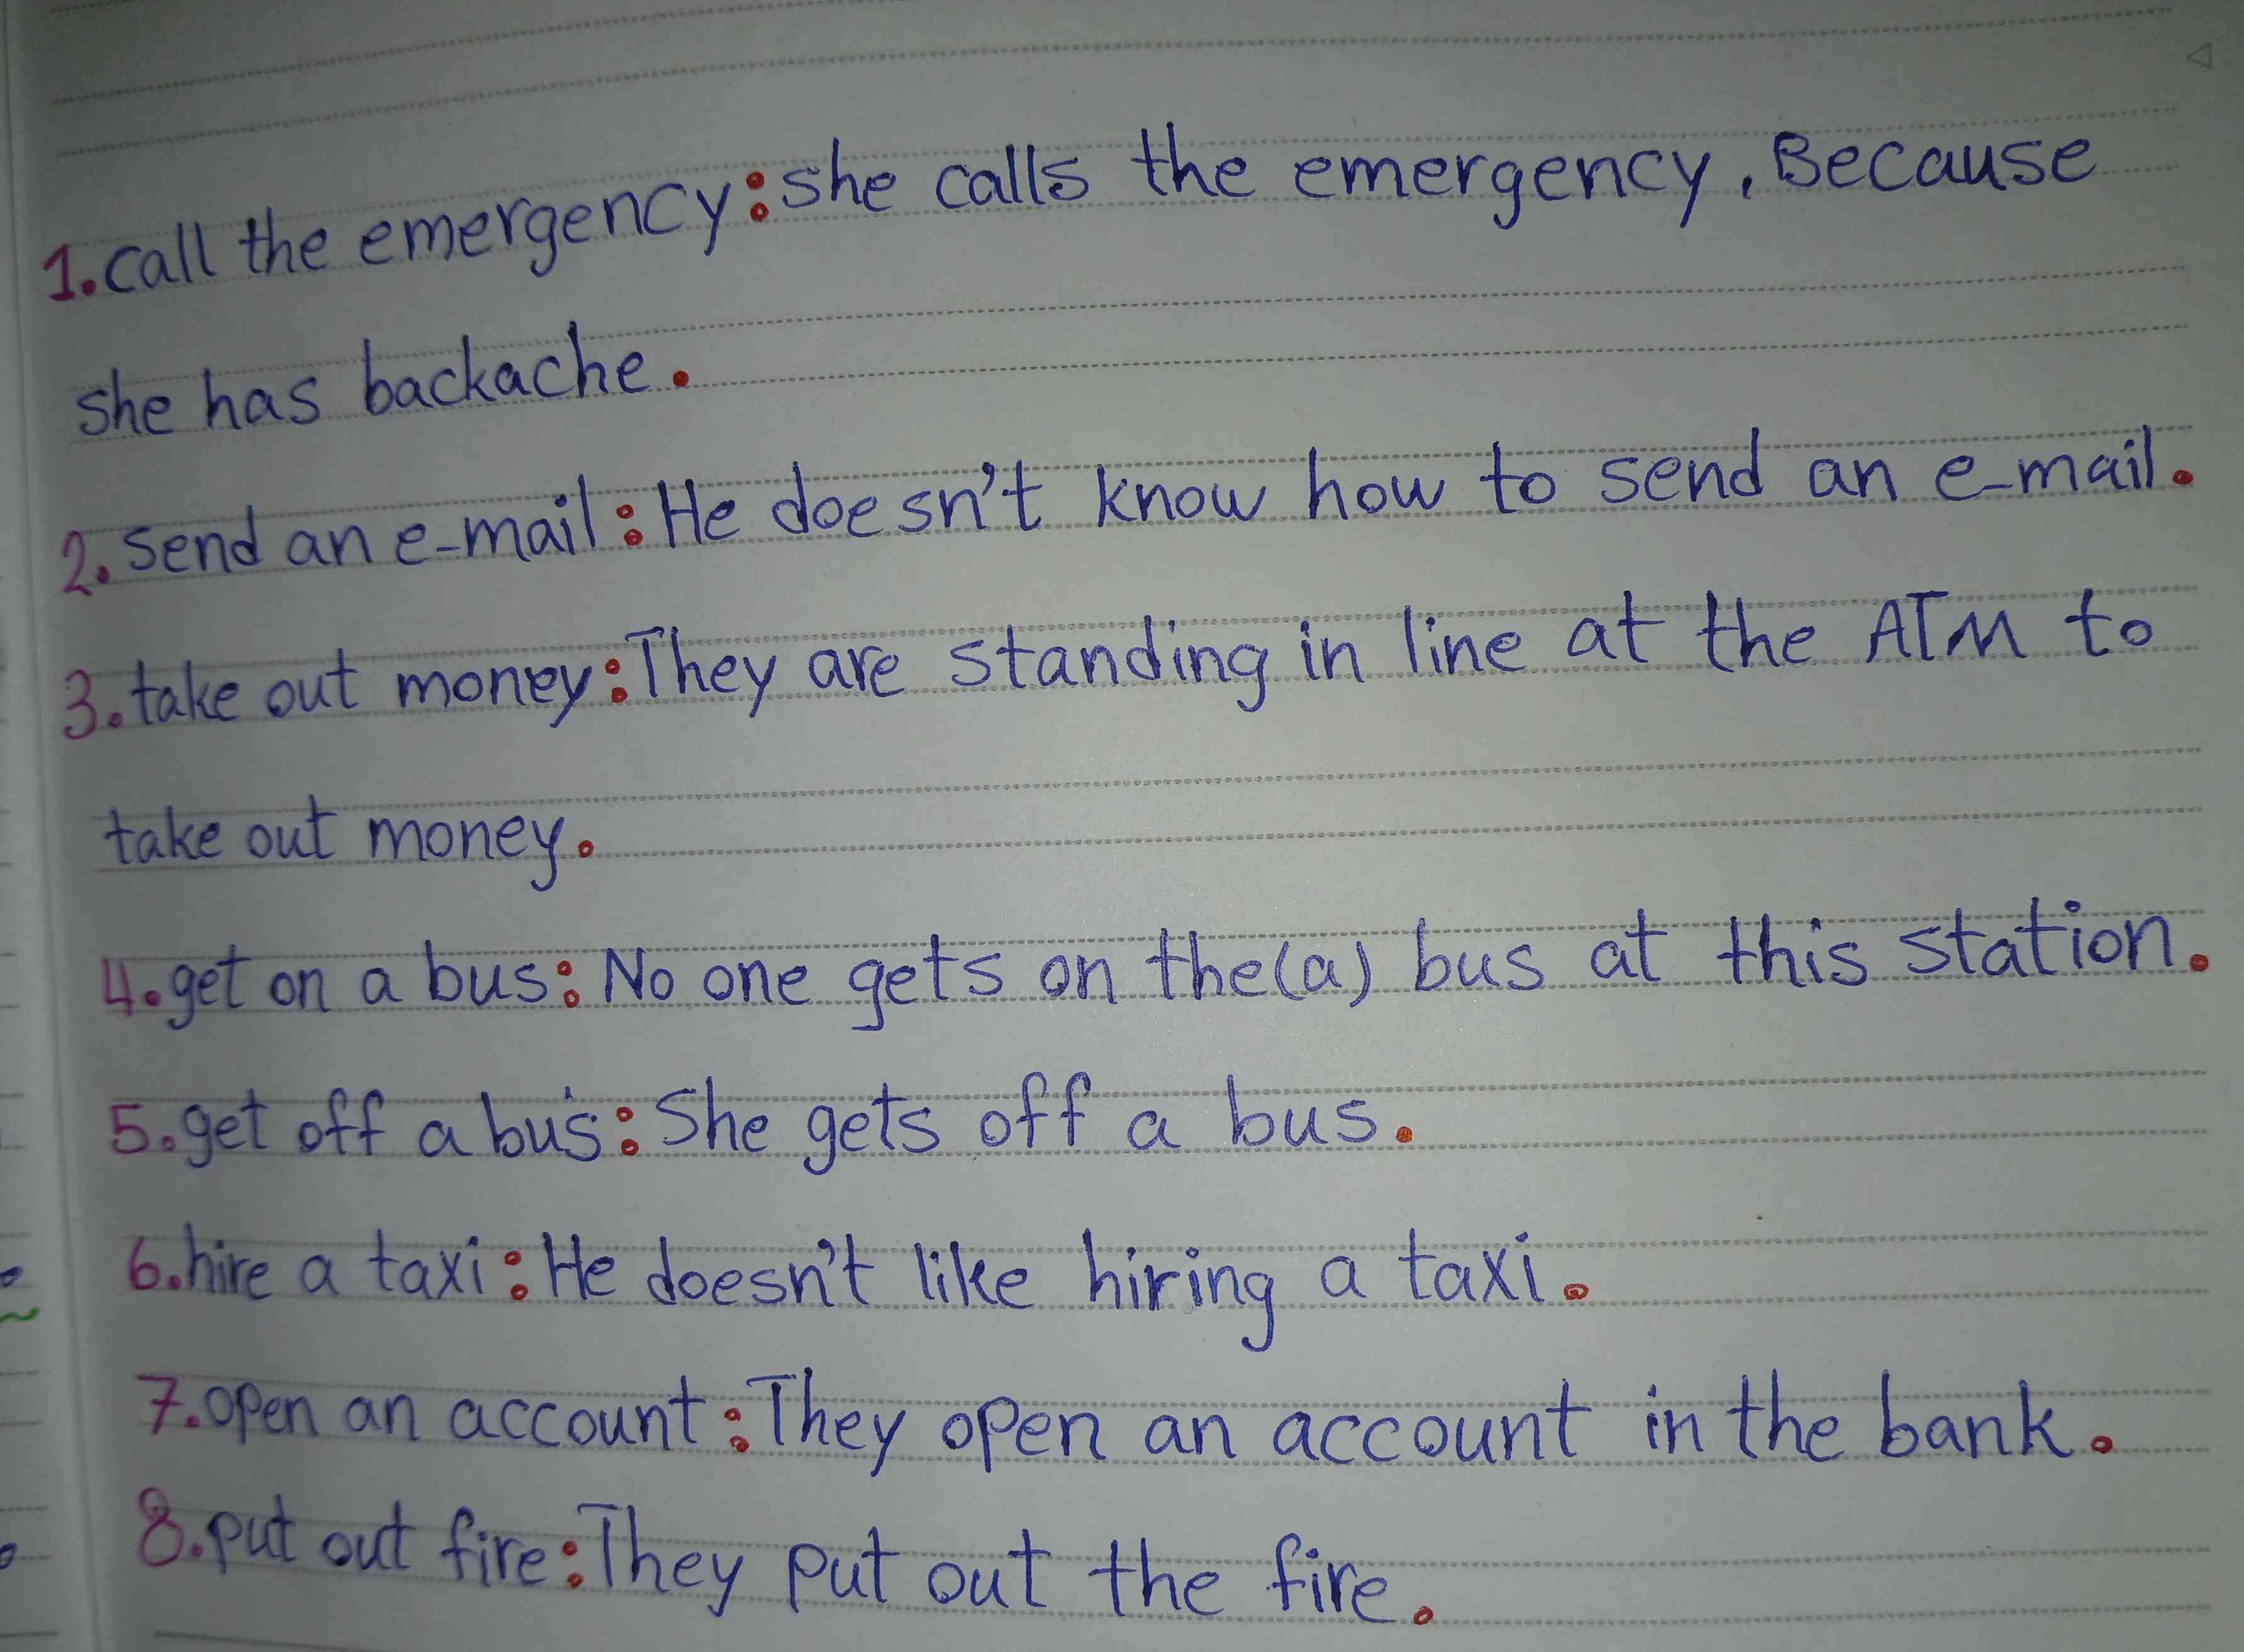 1.call the emergency:she calls the emergency, Because
she has backache.
2.send an e-mail:He doesn't know how to send an e-mail.
3.take out money:They are standing in line at the ATM to
take out money.
4.get on a bus: No one gets on the(a) bus at this station.
5.get off a bus: She gets off a bus.
6.hire a taxi:He doesn't like hiring a taxi.
7.open an account:They open an account in the bank.
8.put out fire:They put out the fire.